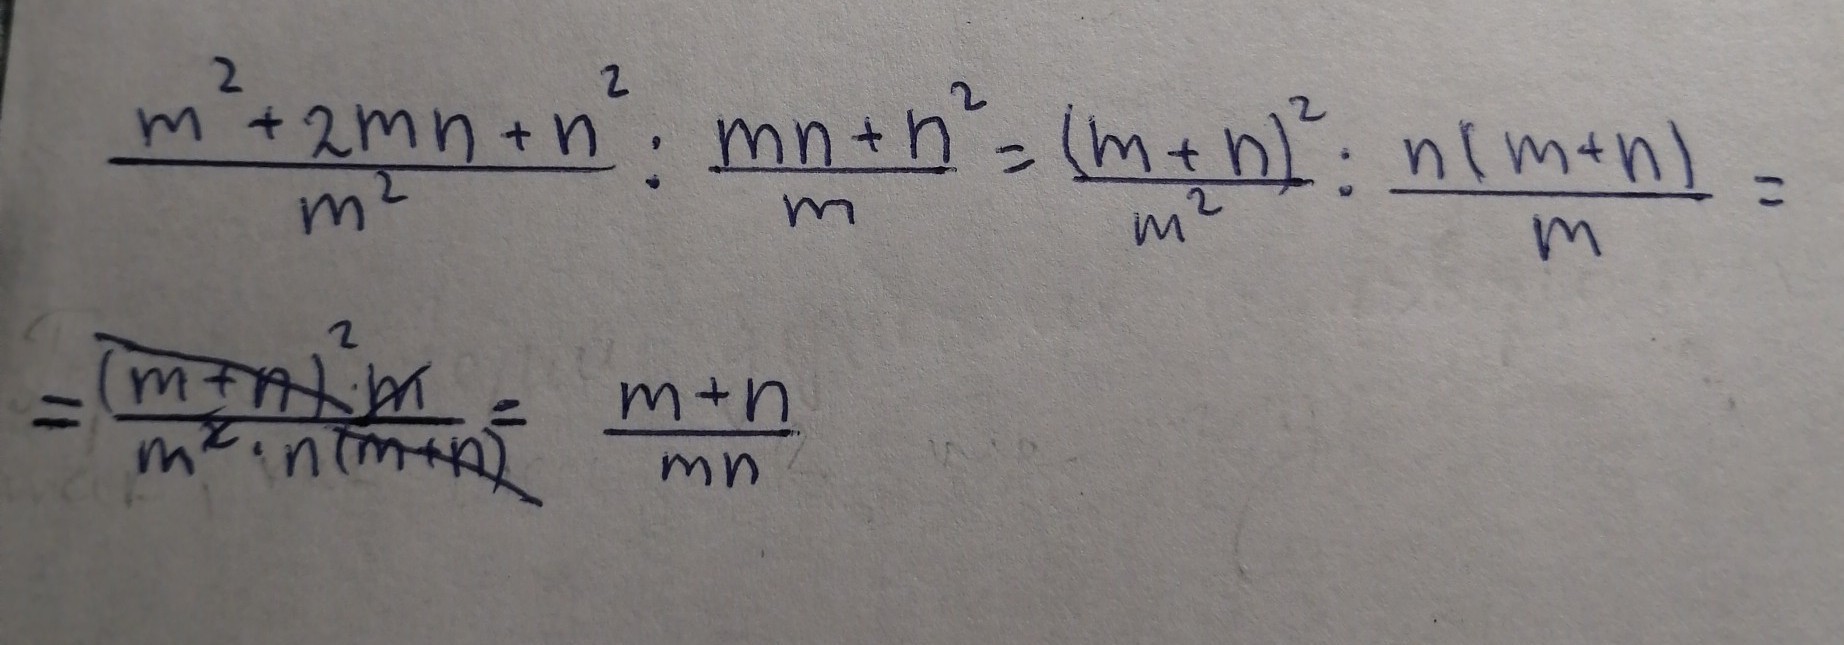 (m² + 2mn + n²)/m² : (mn + n²)/m = (m + n)²/m² : n(m+n)/m =
= ((m+n)² · m)/(m² · n(m+n)) = (m+n)/(mn)